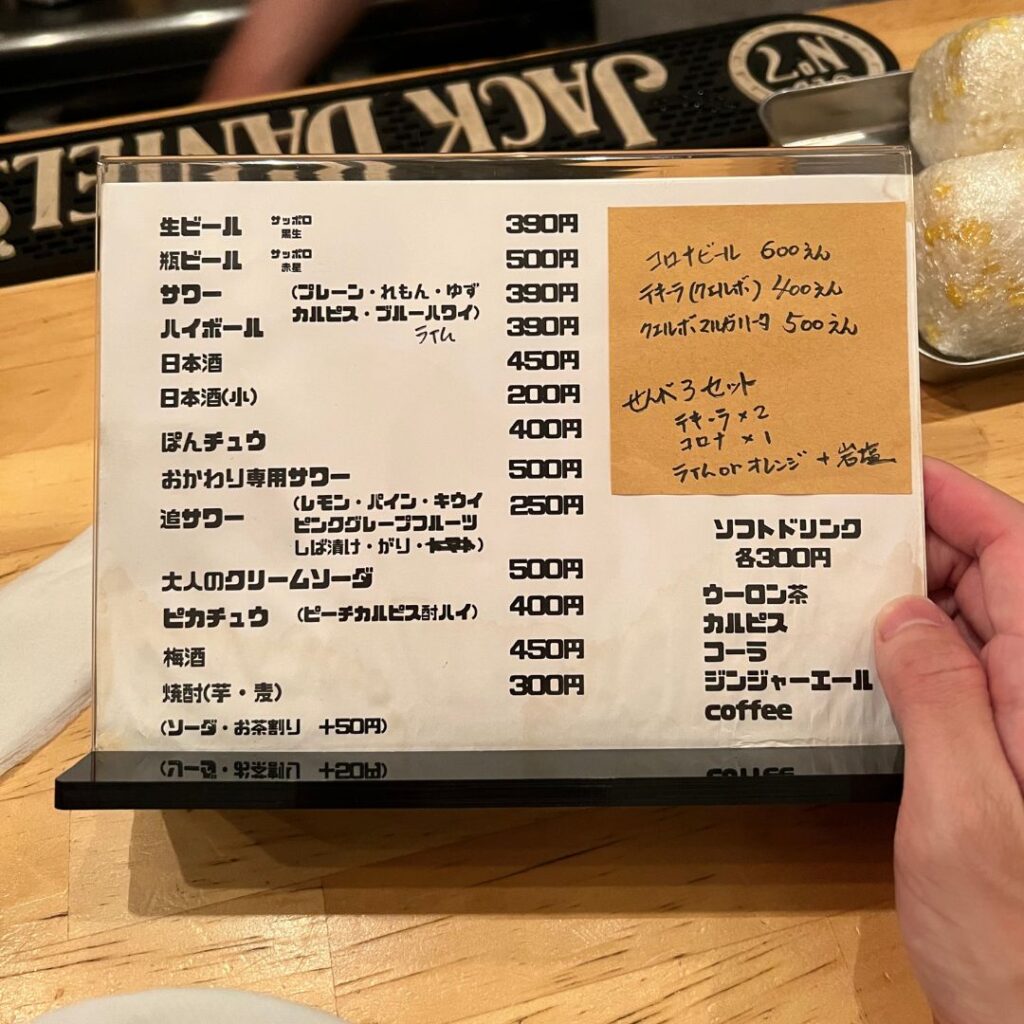 JACK DANIEL'S
OLD No. 7
生ビール サッポロ 黒生 390円
瓶ビール サッポロ 赤星 500円
サワー (プレーン・れもん・ゆず 390円
カルピス・ブルーハワイ)
ライム
ハイボール 390円
日本酒 450円
日本酒(小) 200円
ぽんチュウ 400円
おかわり専用サワー 500円
追サワー (レモン・パイン・キウイ 250円
ピンクグレープフルーツ
しば漬け・がり・トマト)
大人のクリームソーダ 500円
ピカチュウ (ピーチカルピス酎ハイ) 400円
梅酒 450円
焼酎(芋・麦) 300円
(ソーダ・お茶割り +50円)
コロナビール 600えん
テキーラ(クエルボ) 400えん
クエルボマルガリータ 500えん
せんべろセット
テキーラ×2
コロナ ×1
ライムorオレンジ + 岩塩
ソフトドリンク
各300円
ウーロン茶
カルピス
コーラ
ジンジャーエール
coffee